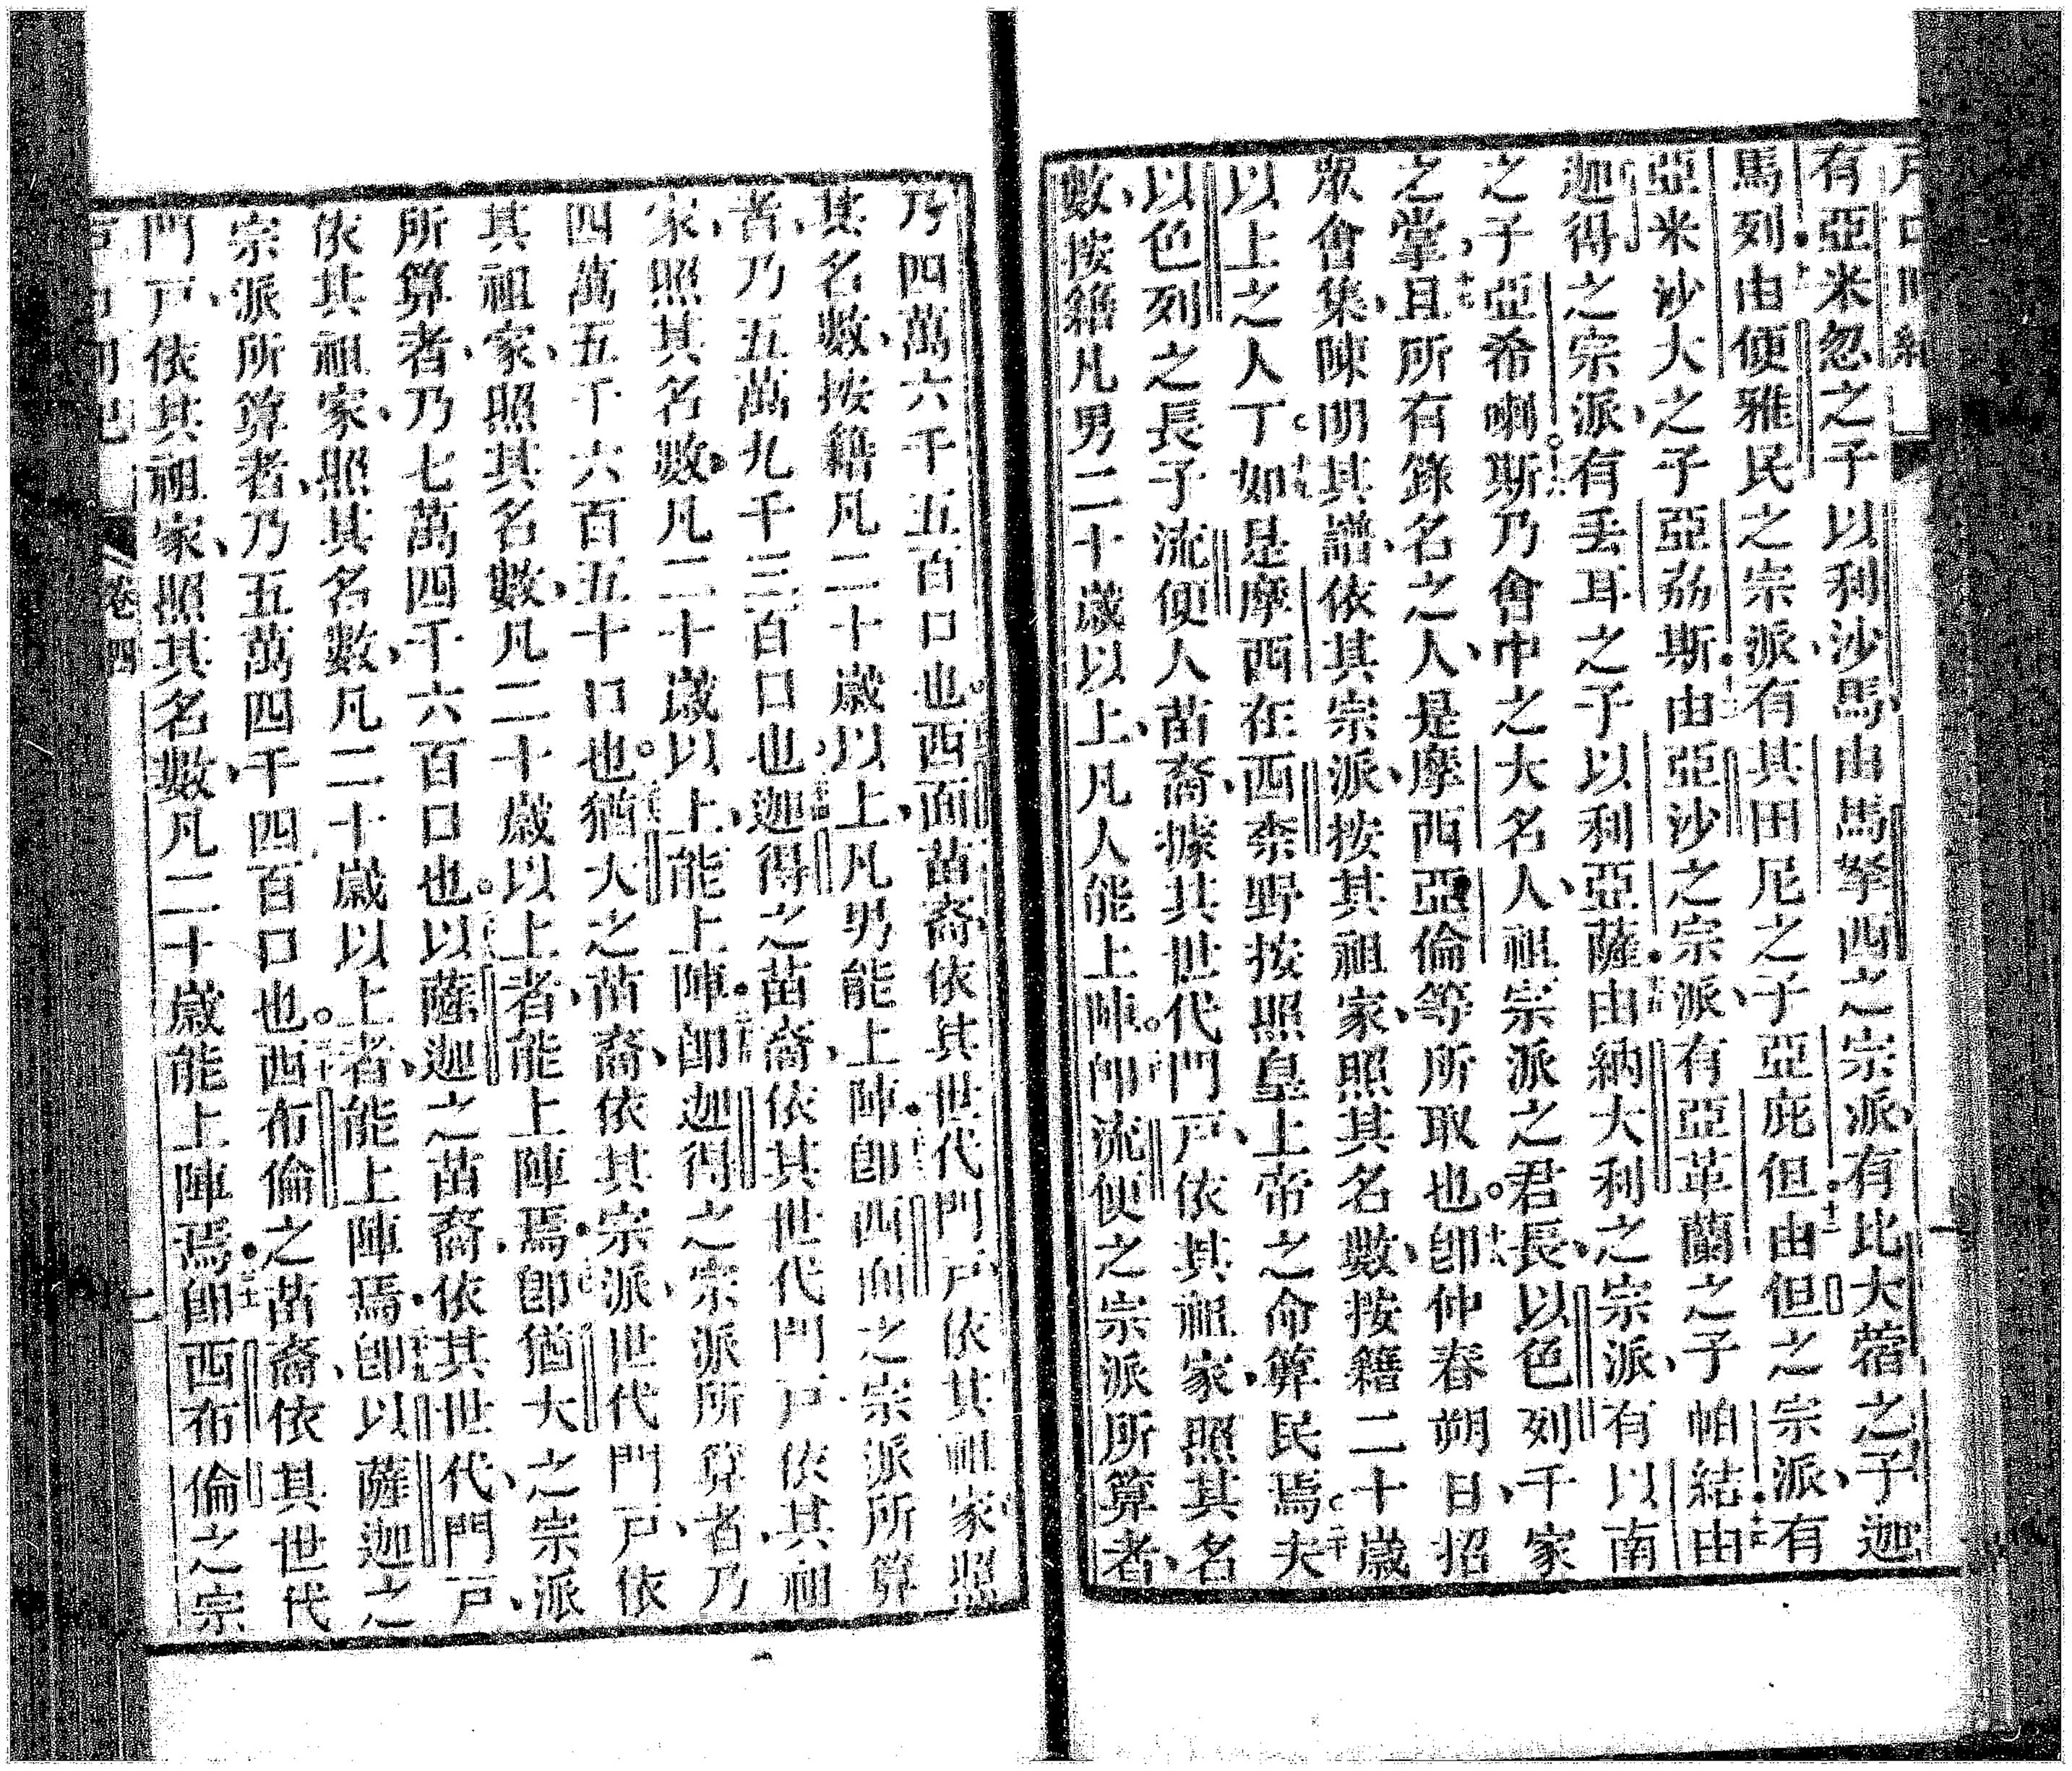 有亞米忽之子以利沙馬、由馬拏西之宗派、有比大蓿之子迦
馬列由便雅民之宗派、有其田尼之子亞庇但由但之宗派、有
亞米沙大之子亞荔斯由亞沙之宗派、有亞革蘭之子帕結由
迦得之宗派、有丟耳之子以利亞薩由納大利之宗派、有以南
之子亞希喇斯乃會中之大名人、祖宗派之君長、以色列千家
之掌、且所有錄名之人、是摩西亞倫等所取也。卽仲春朔日、招
眾會集、陳明其譜、依其宗派、按其祖家、照其名數、按籍二十歲
以上之人丁如是摩西在西柰野按照皇上帝之命算民焉夫
以色列之長子流便人苗裔、據其世代門戶、依其祖家、照其名
數、按籍凡男二十歲以上、凡人能上陣。卽流便之宗派所算者、
乃四萬六千五百口也。西面苗裔、依其世代門戶、依其祖家、照
其名數、按籍凡二十歲以上、凡男能上陣、卽西面之宗派所算
者、乃五萬九千三百口也、迦得之苗裔、依其世代門戶、依其祖
家、照其名數、凡二十歲以上、能上陣、卽迦得之宗派所算者、乃
四萬五千六百五十口也。猶大之苗裔、依其宗派、世代門戶、依
其祖家、照其名數、凡二十歲以上者、能上陣焉、卽猶大之宗派
所算者、乃七萬四千六百口也。以薩迦之苗裔、依其世代門戶、
依其祖家、照其名數、凡二十歲以上者、能上陣焉、卽以薩迦之
宗派所算者、乃五萬四千四百口也。西布倫之苗裔、依其世代
門戶、依其祖家、照其名數、凡二十歲能上陣焉、卽西布倫之宗
卷四
二